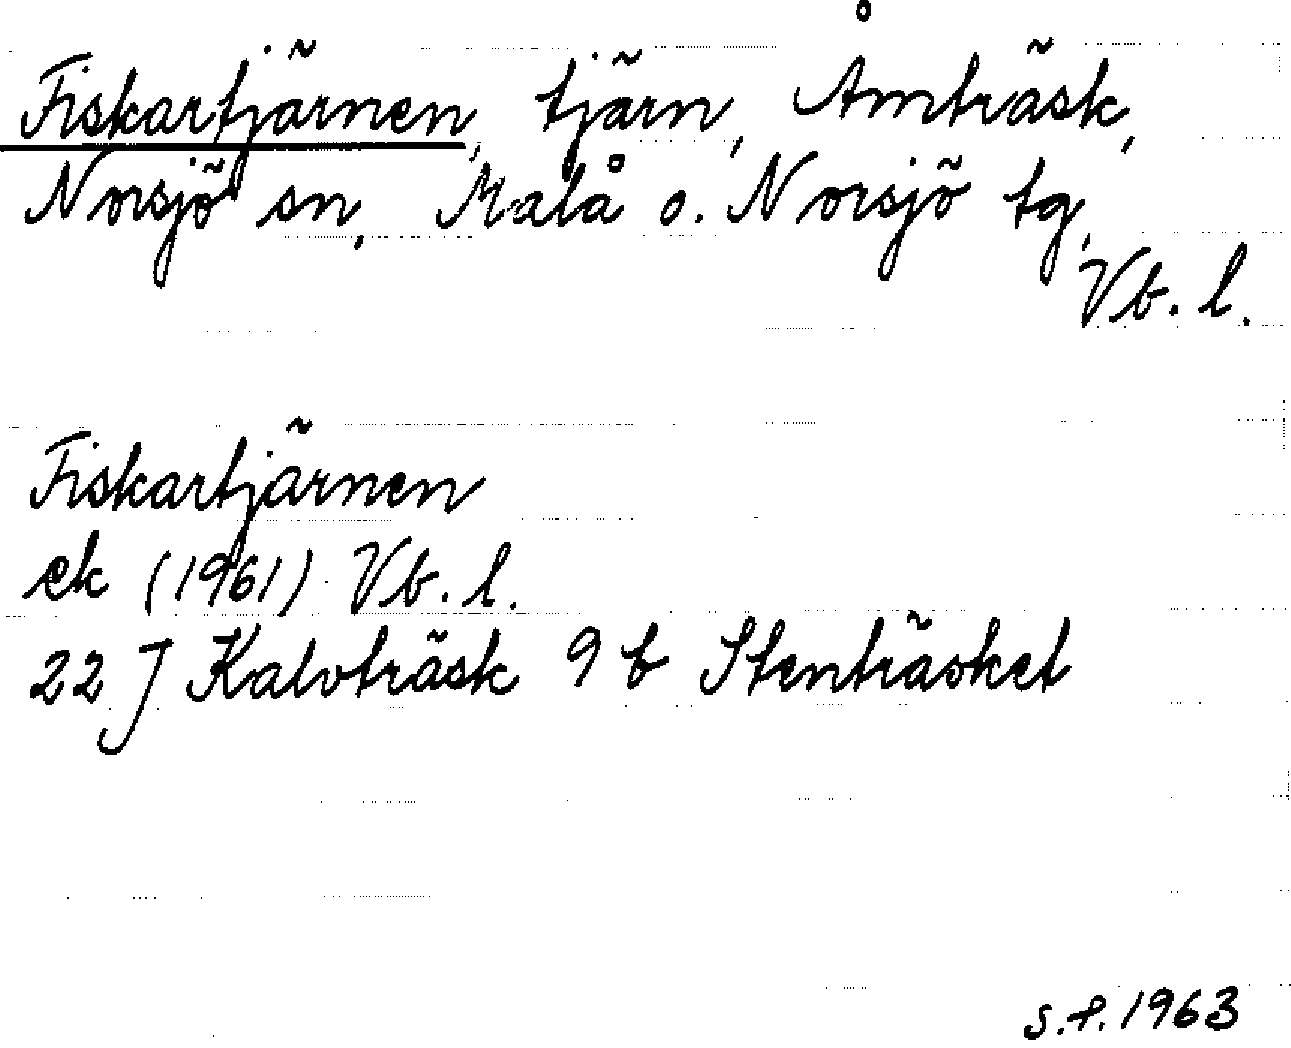 Fiskartjärnen, tjärn, Åmträsk,
Norsjö sn, Malå o. Norsjö tg,
Vb. l.
Fiskartjärnen
ek (1961) Vb. l.
22 J Kalvträsk 9 b Stenträsket
s.f. 1963